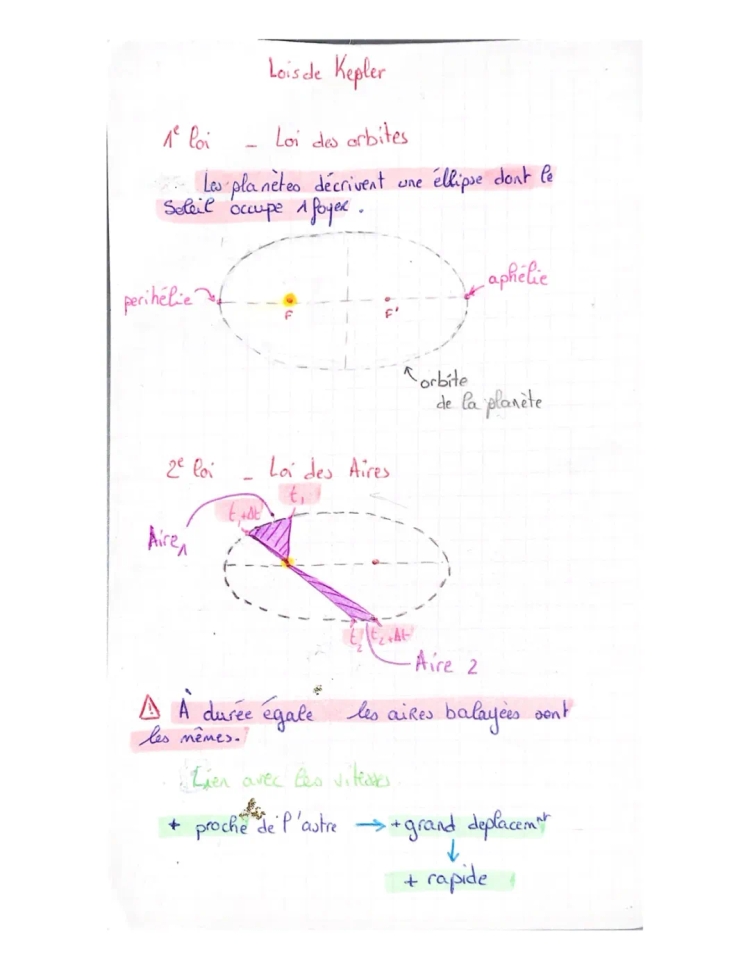 Lois de Kepler
1e loi - Loi des orbites
Les planètes décrivent une éllipse dont le
Soleil occupe 1 foyer.
perihélie
aphélie
F
F'
orbite
de la planète
2e loi - Loi des Aires
t1
t1+Δt
Aire1
t2
t2+Δt
Aire 2
À durée égale les aires balayées sont
les mêmes.
Lien avec les vitesses
+ proche de l'astre → +grand deplacemnt
↓
+ rapide